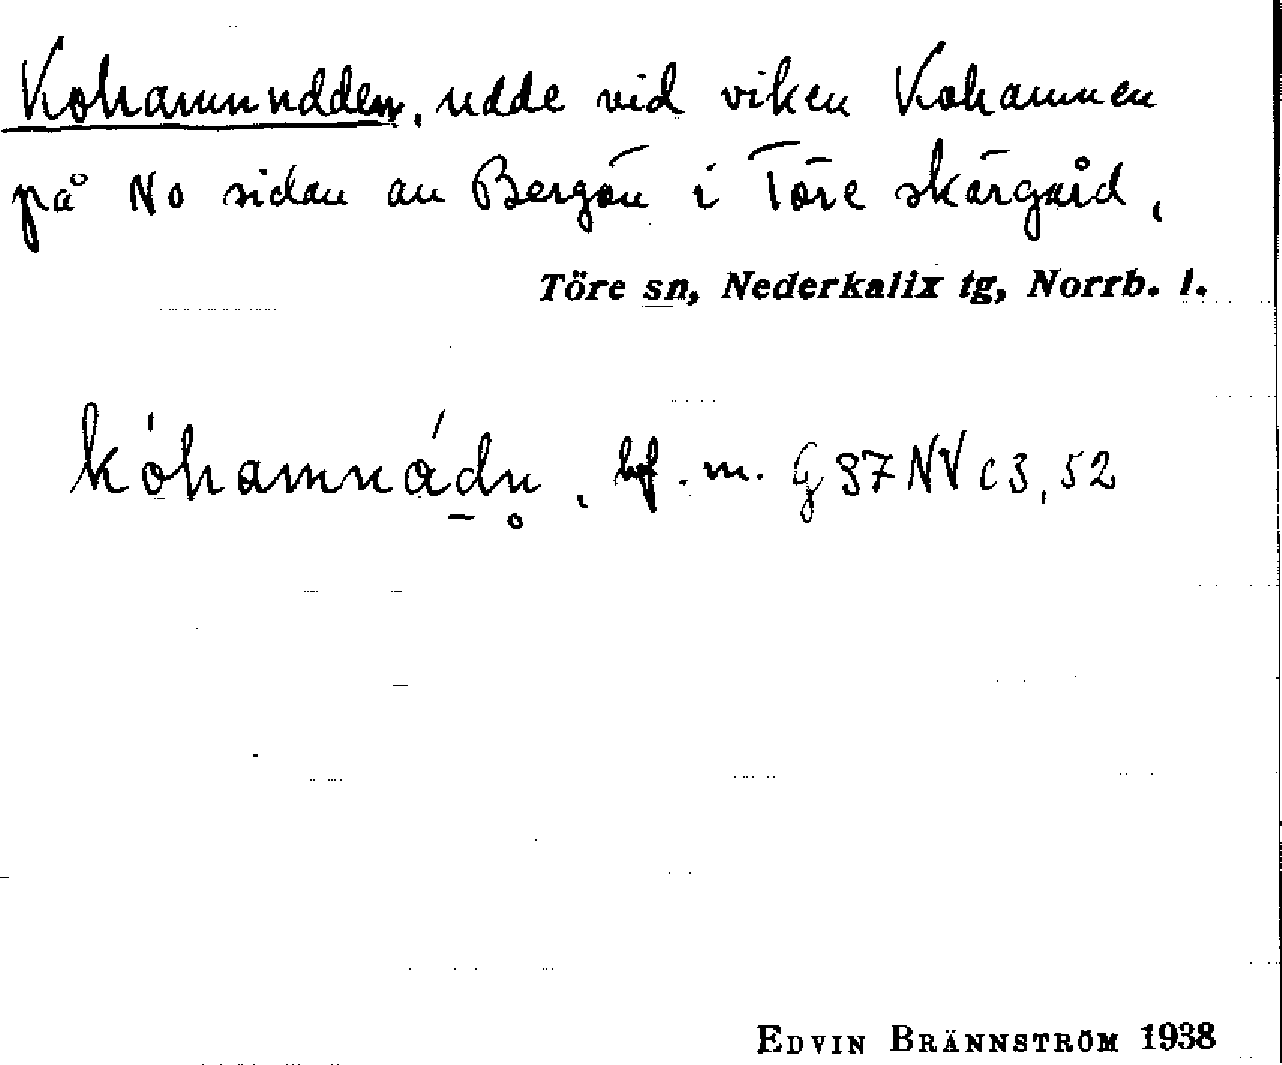 Kohamnudden, udde vid viken Kohamnen
på No sidan av Bergön i Töre skärgård,
Töre sn, Nederkalix tg, Norrb. l.
kóhamnádn̥, bf. m. G 37 NV c3, 52
EDVIN BRÄNNSTRÖM 1938